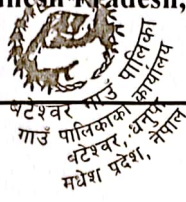 Madhesh Pradesh,
बटेश्वर गाउँ पालिका
गाउँ पालिकाको कार्यालय
बटेश्वर, धनुषा
मधेश प्रदेश, नेपाल